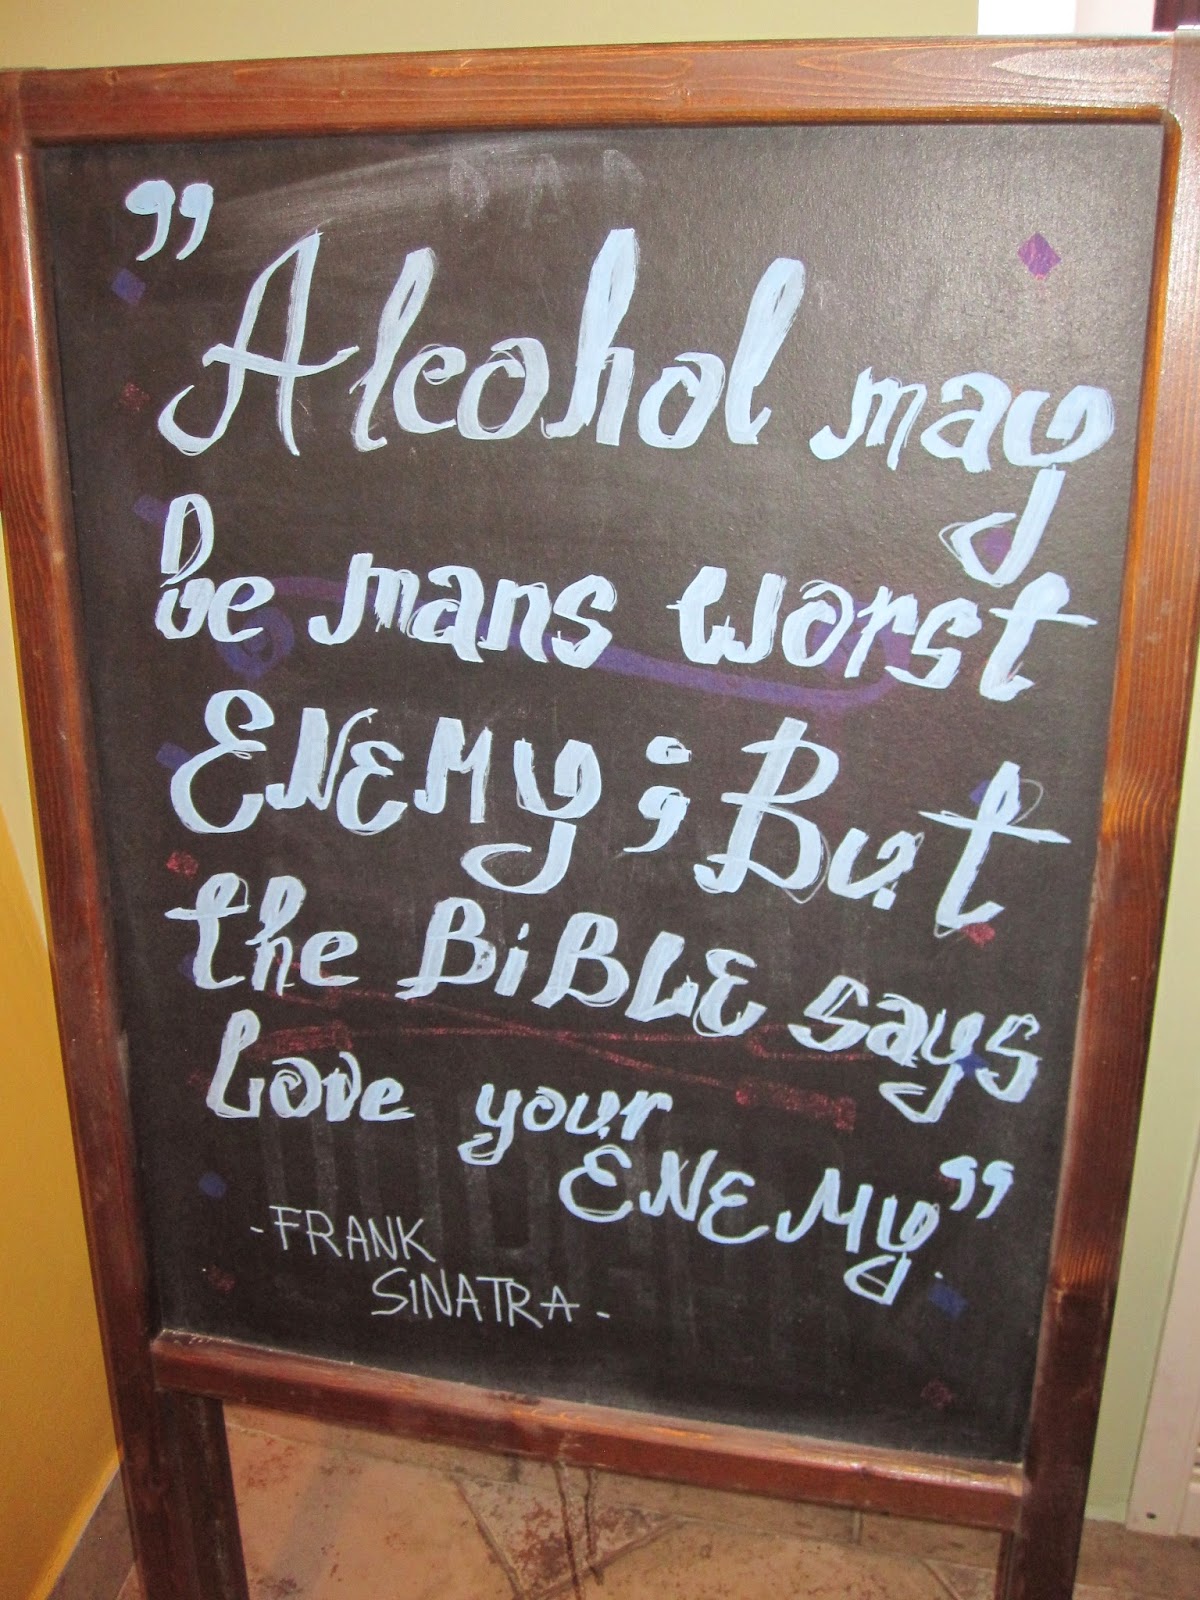 ”Alcohol may
be mans worst
ENEMY; But
the BiBLE says
Love your
ENEMY”.
- FRANK
SINATRA -